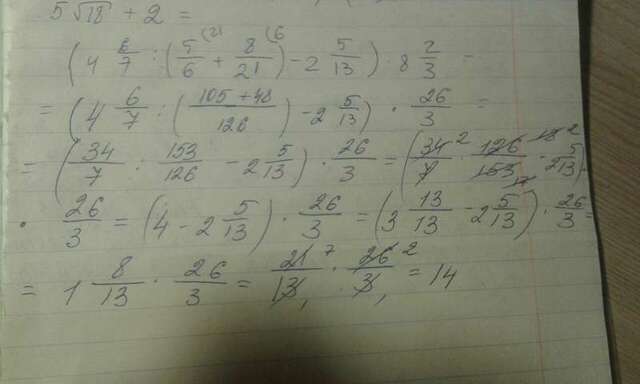 5√18 + 2 =
(4 6/7 : (5/6 (21 + 8/21 (6) - 2 5/13) · 8 2/3 =
= (4 6/7 : (105+48/126) - 2 5/13) · 26/3 =
= (34/7 : 153/126 - 2 5/13) · 26/3 = (34 2/7 · 126 18 2/153 17 - 2 5/13) ·
· 26/3 = (4 - 2 5/13) · 26/3 = (3 13/13 - 2 5/13) · 26/3 =
= 1 8/13 · 26/3 = 21 7/13 1 · 26 2/3 1 = 14